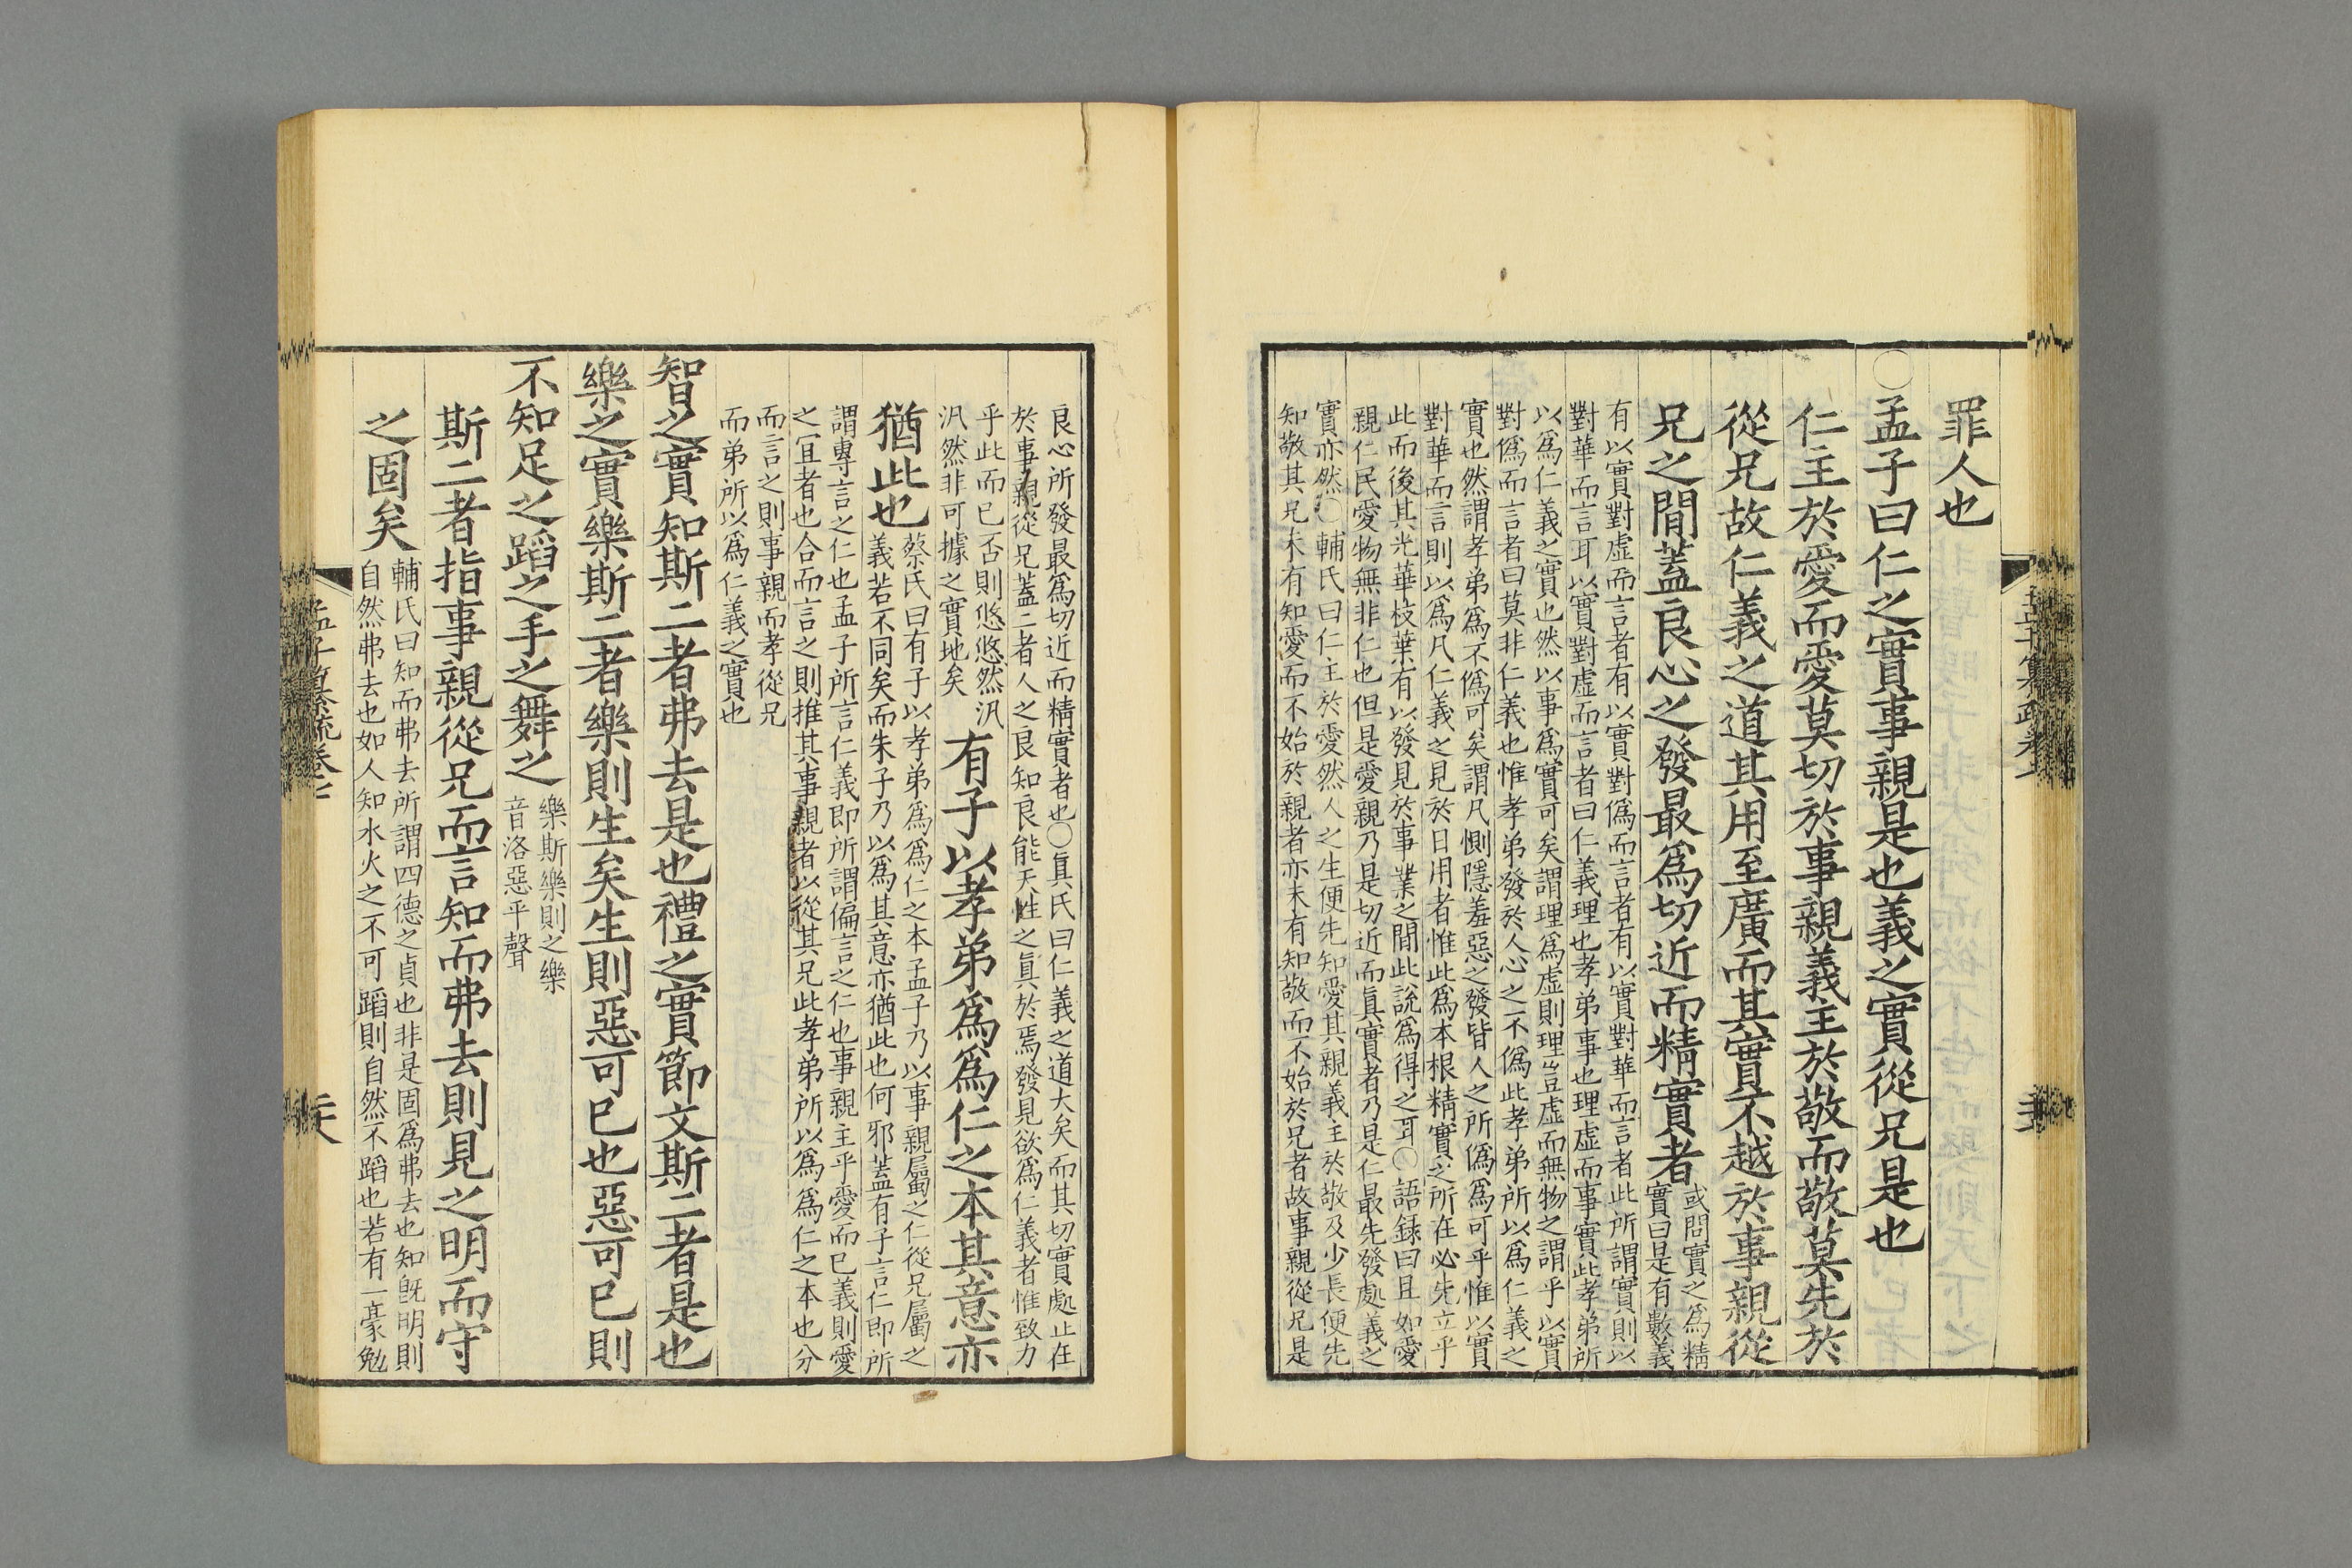 罪人也
○孟子曰仁之實事親是也義之實從兄是也
仁主於愛而愛莫切於事親義主於敬而敬莫先於
從兄故仁義之道其用至廣而其實不越於事親從
兄之閒蓋良心之發最爲切近而精實者
或問實之爲精
實曰是有數義
有以實對虛而言者有以實對僞而言者有以實對華而言者此所謂實則以
對華而言耳以實對虛而言者曰仁義理也孝弟事也理虛而事實此孝弟所
以爲仁義之實也然以事爲實可矣謂理爲虛則理豈虛而無物之謂乎以實
對僞而言者曰莫非仁義也惟孝弟發於人心之不僞此孝弟所以爲仁義之
實也然謂孝弟爲不僞可矣謂凡惻隱羞惡之發皆人之所僞爲可乎惟以實
對華而言則以爲凡仁義之見於日用者惟此爲本根精實之所在必先立乎
此而後其光華枝葉有以發見於事業之間此說爲得之耳○語録曰且如愛
親仁民愛物無非仁也但是愛親乃是切近而眞實者乃是仁最先發處義之
實亦然○輔氏曰仁主於愛然人之生便先知愛其親義主於敬及少長便先
知敬其兄未有知愛而不始於親者亦未有知敬而不始於兄者故事親從兄是
良心所發最爲切近而精實者也○眞氏曰仁義之道大矣而其切實處止在
於事親從兄蓋二者人之良知良能天性之眞於焉發見欲爲仁義者惟致力
乎此而已否則悠悠然汎
汎然非可據之實地矣
有子以孝弟爲爲仁之本其意亦
猶此也
蔡氏曰有子以孝弟爲爲仁之本孟子乃以事親屬之仁從兄屬之
義若不同矣而朱子乃以爲其意亦猶此也何邪蓋有子言仁即所
謂專言之仁也孟子所言仁義即所謂偏言之仁也事親主乎愛而已義則愛
之宜者也合而言之則推其事親者以從其兄此孝弟所以爲爲仁之本也分
而言之則事親而孝從兄
而弟所以爲仁義之實也
智之實知斯二者弗去是也禮之實節文斯二者是也
樂之實樂斯二者樂則生矣生則惡可已也惡可已則
不知足之蹈之手之舞之
樂斯樂則之樂
音洛惡平聲
斯二者指事親從兄而言知而弗去則見之明而守
之固矣
輔氏曰知而弗去所謂四德之貞也非是固爲弗去也知旣明則
自然弗去也如人知水火之不可蹈則自然不蹈也若有一豪勉